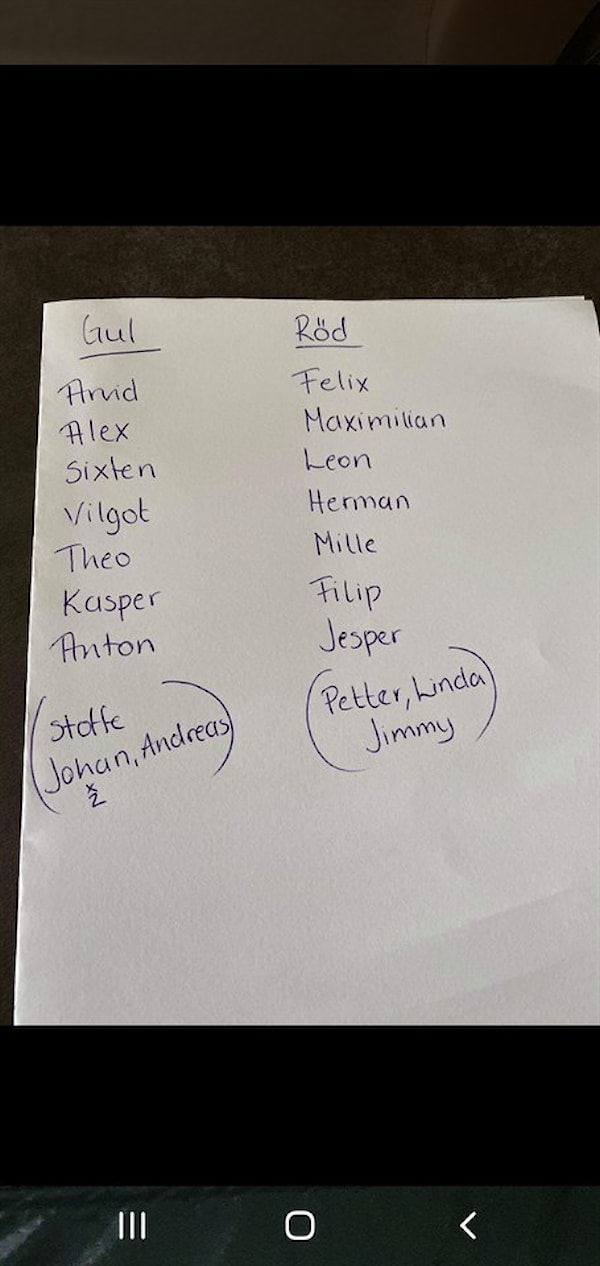 Gul
Arvid
Alex
Sixten
Vilgot
Theo
Kasper
Anton
(Stoffe
Johan, Andreas)
x2
Röd
Felix
Maximilian
Leon
Herman
Mille
Filip
Jesper
(Petter, Linda
Jimmy)